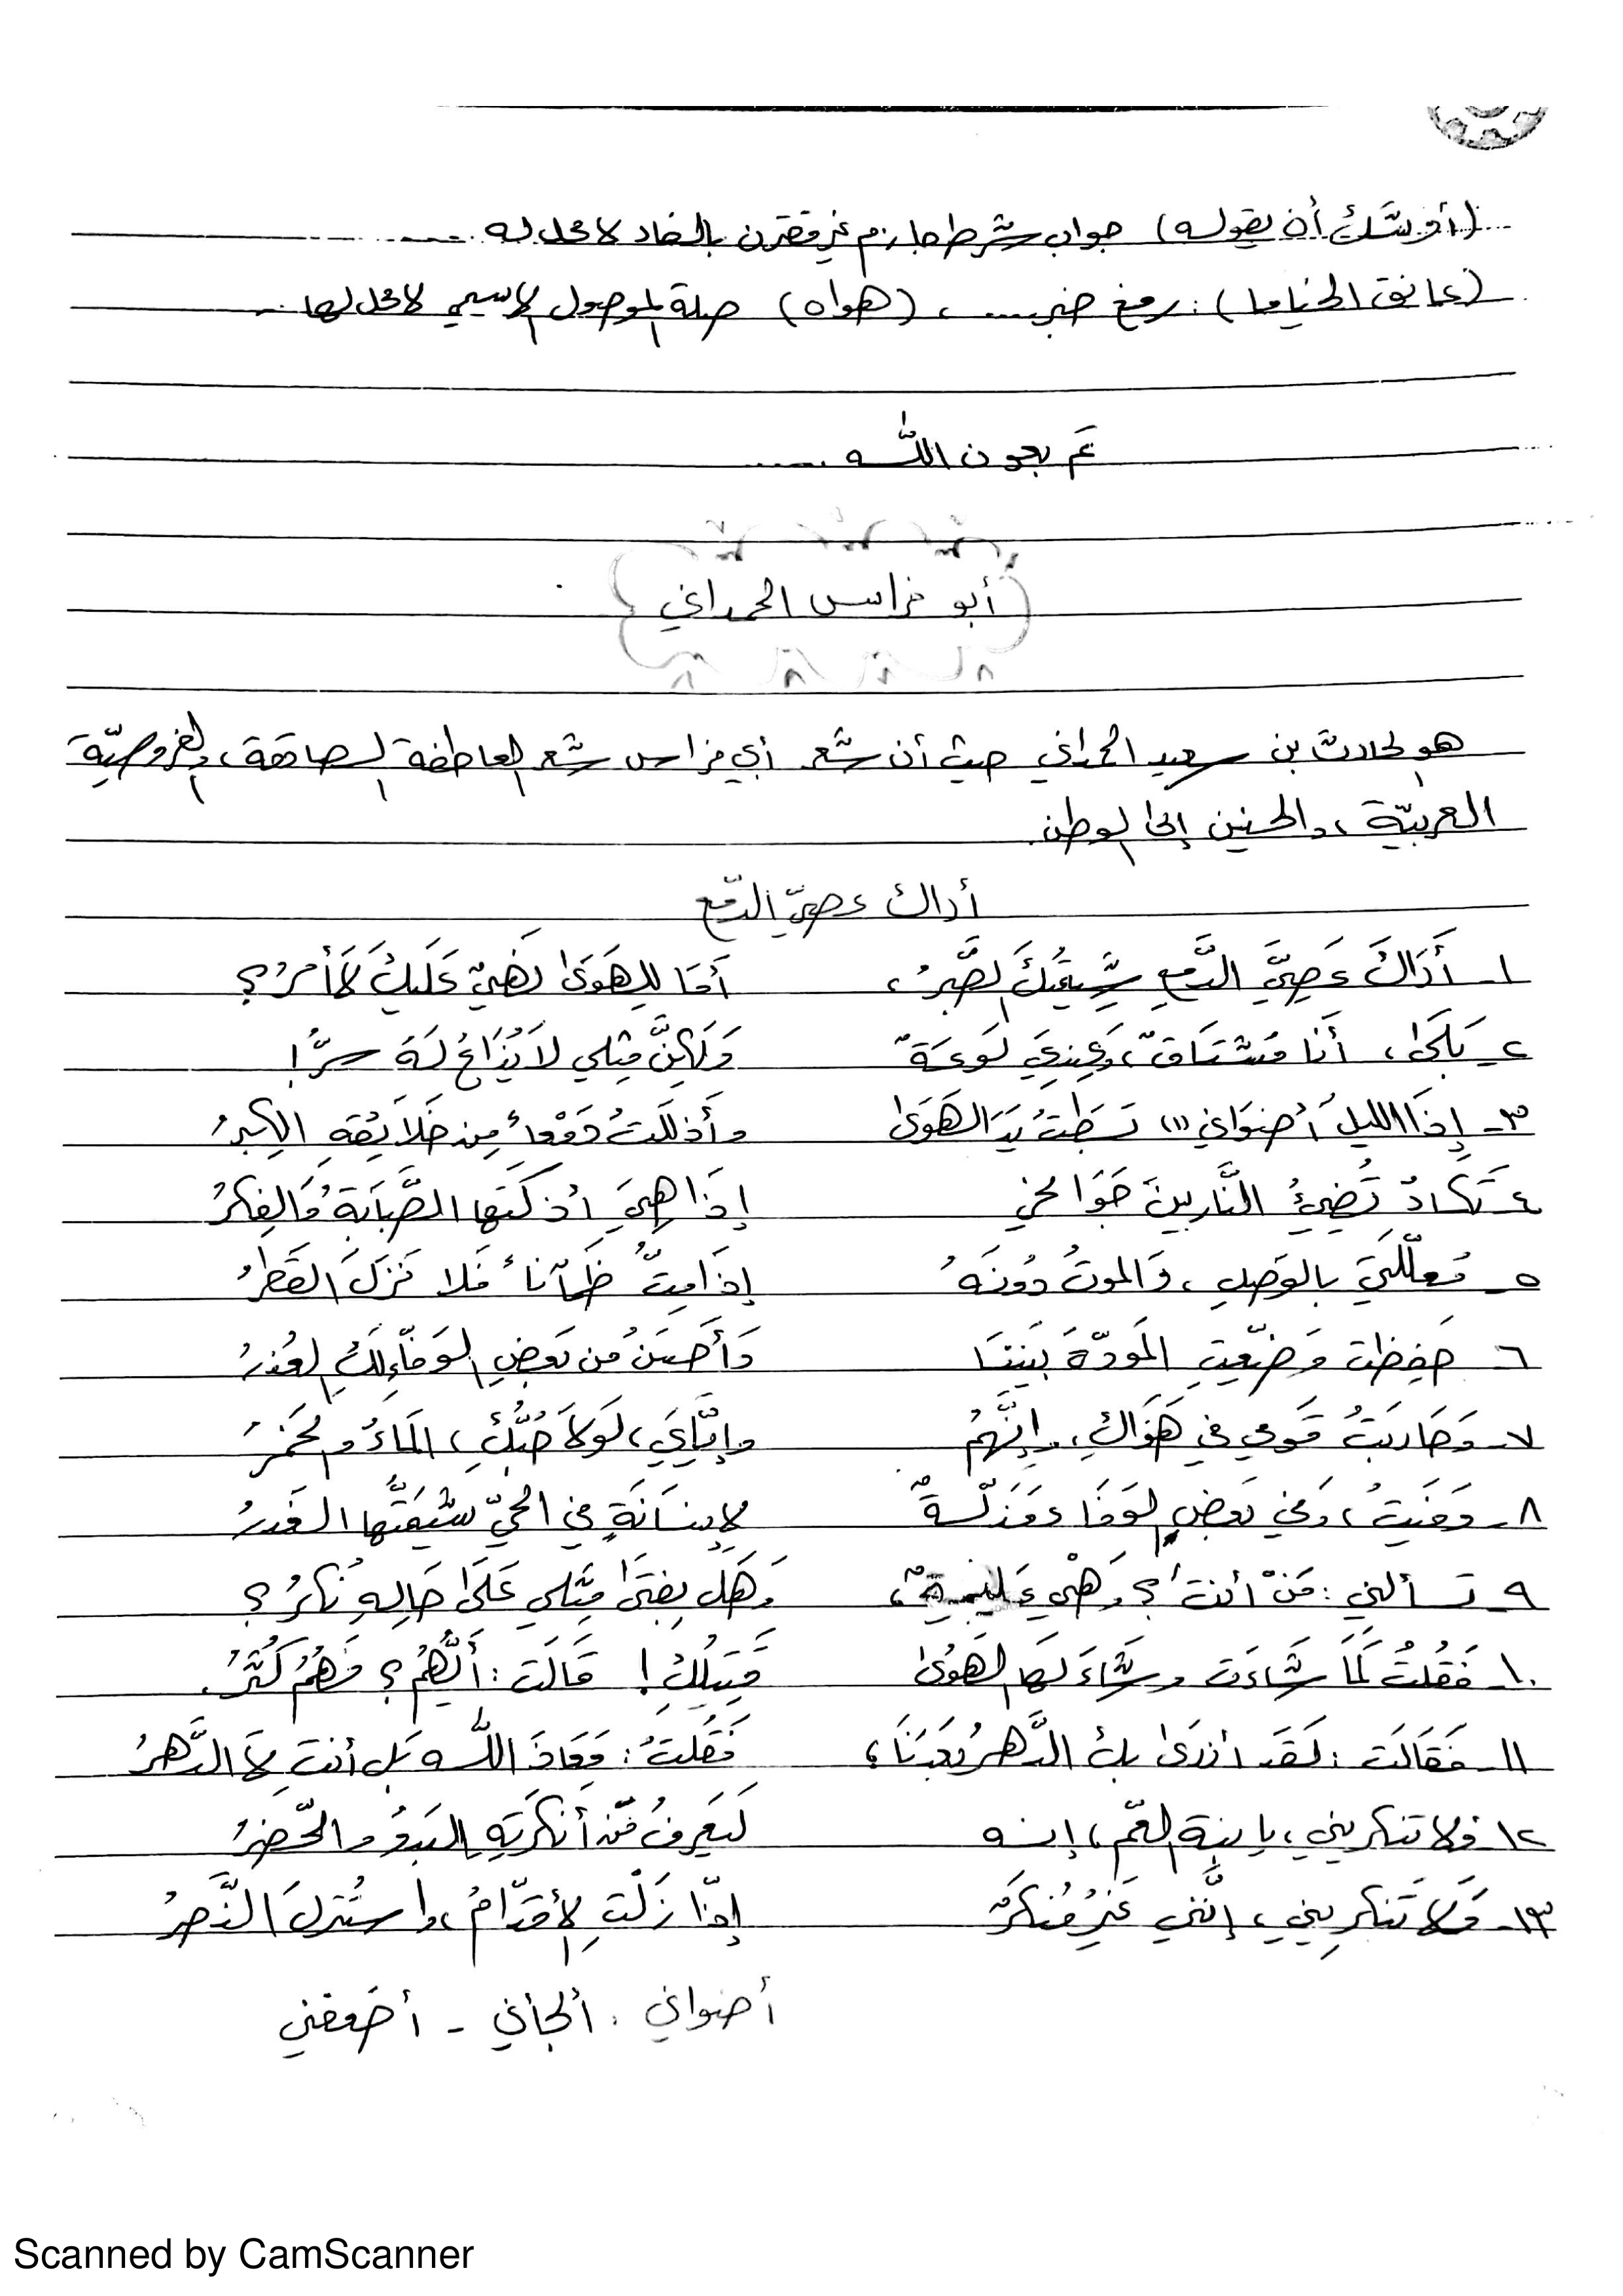 (أوشك أن يقوله) جواب شرط جازم غير مقترن بالفاء لا محل له ......
(عانق الخياما): رفع خبر .....، (هواه) صلة الموصول الاسمي لا محل لها ..
تم بعون الله .....
(أبو فراس الحمداني)
هو الحارث بن سعيد الحمداني حيث أن شعر أبي فراس شعر العاطفة الصادقة، والفروسيّة
العربيّة، والحنين إلى الوطن.
أراك عصيّ الدّمع
١- أَرَاكَ عَصِيَّ الدَّمعِ شِيمَتُكَ الصَّبرُ، أَمَا لِلهَوَىٰ نَهيٌ عَلَيكَ وَلاَ أمرُ؟
٢- بَلَىٰ، أَنَا مُشتَاقٌ، وَعِندِيَ لَوعَةٌ وَلَكِنَّ مِثلِي لاَ يُذَاعُ لَهُ سرُّ!
٣- إِذَا الليلُ أضوَاني (١) بَسَطتُ يَدَ الهَوَىٰ وأَذلَلتُ دَمْعاً مِن خَلَائِقِهِ الكِبرُ
٤- تَكَادُ تُضِيءُ النَّار بينَ جَوَانحي إِذَا هِيَ أذكَتهَا الصَّبَابَةُ وَالفِكرُ
٥- مُعلّلَتي بالوَصلِ، وَالموتُ دُونَهُ إذَا مِتُّ ظمآناً فَلا نَزَلَ القَطرُ
٦- حَفِظت وَضيّعتِ المَودّةَ بَينَنَا وَأَحسَنُ من بَعضِ الوَفَاءِ لَكِ العُذرُ
٧- وَحَاربتُ قَومي في هَوَاكِ، وإنَّهُم وإيَّايَ، لَولاَ حُبُّكِ، المَاءُ والخَمرُ
٨- وَفَيتُ، وَفي بَعضِ الوَفَاء مَذَلّةٌ لإنسَانَةٍ في الحيّ شيمَتُهَا الغَدرُ
٩- تسألني: مَنْ أنتَ؟ وَهْيَ عَليمةٌ، وَهَل بِفتىً مِثلي عَلَىٰ حَالِهِ نُكرُ؟
١٠- فَقُلتُ كَمَا شَاءَت وشَاءَ لهَا الهَوَىٰ قَتِيلُكِ! قَالَت: أيُّهُم؟ فَهُمُ كُثرُ.
١١- فَقَالَت: لَقَد أزرَىٰ بكَ الدَّهرُ بَعدَنَا، فَقُلتُ: مَعَاذَ اللّه بَل أنتِ لا الدَّهرُ
١٢- فلا تنكريني، يا بنة العمّ، إنه لَيَعرِفُ مَن أنكَرتِهِ البَدوُ والحَضرُ
١٣- وَلا تَنكريني، إنَّني غَيرُ مُنكَرٍ إذا زَلّتِ الأقدَامُ، واستُنزلَ النَّصرُ
أضواني: ألجأني - أضعفني
Scanned by CamScanner